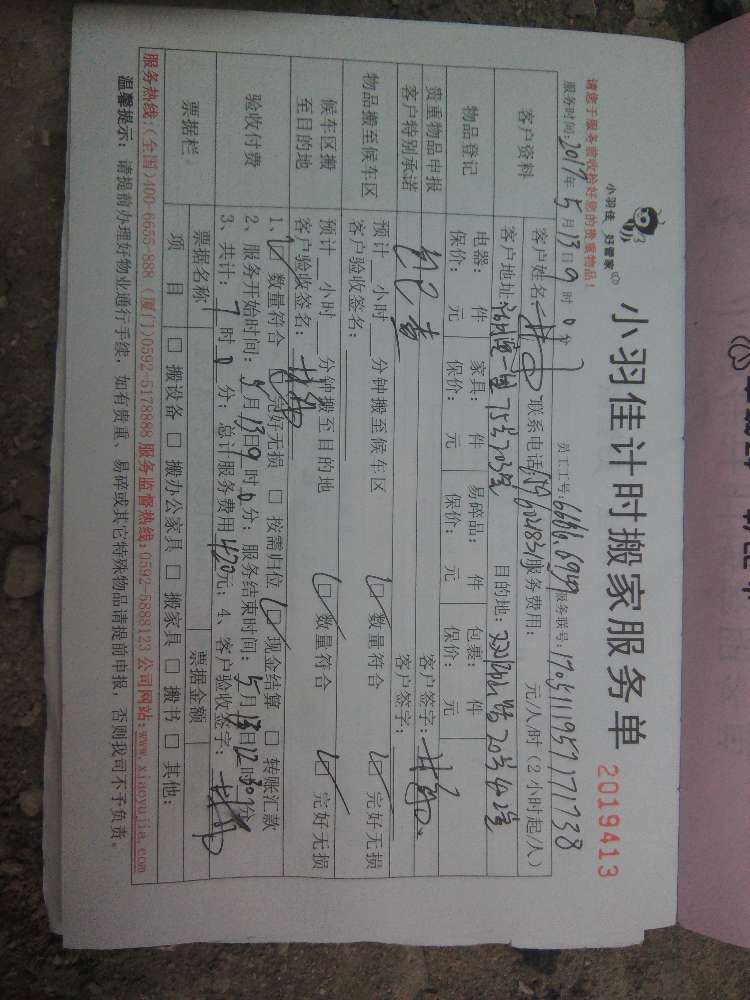 小羽佳 好管家
小羽佳计时搬家服务单 2019413
请您于服务验收检好您的贵重物品！
服务时间：2017年5月13日9时0分 员工工号：6686.6919 服务联号：17051119571711738
客户资料 客户姓名： 联系电话： 服务费用： 元/人/时（2小时起/人）
客户地址： 75号703室 目的地： 20号402室
物品登记 电器： 件 家具： 件 易碎品： 件 包裹： 件
保价： 元 保价： 元 保价： 元 保价： 元
贵重物品申报 自己拿 客户签字：
客户特别承诺 客户签字：
物品搬至候车区 预计 小时 分钟搬至候车区 □ 数量符合 □ 完好无损
客户验收签名：
候车区搬至目的地 预计 小时 分钟搬至目的地 □ 数量符合 □ 完好无损
客户验收签名：
验收付费 1、□ 数量符合 □ 完好无损 □ 按需归位 □ 现金结算 □ 转账汇款
2、服务开始时间：5月13日9时0分；服务结束时间：5月13日12时30分
3、共计：7时0分；总计服务费用420元；4、客户验收签字：
票据栏 票据名称 票据金额
项 目 □ 搬设备 □ 搬办公家具 □ 搬家具 □ 搬书 □ 其他：
服务热线：(全国)400-6655-888 (厦门)0592-5178888 服务监督热线：0592-5888123 公司网站：www.xiaoyujia.com
温馨提示：请提前办理好物业通行手续，如有贵重、易碎或其它特殊物品请提前申报，否则我司不予负责。